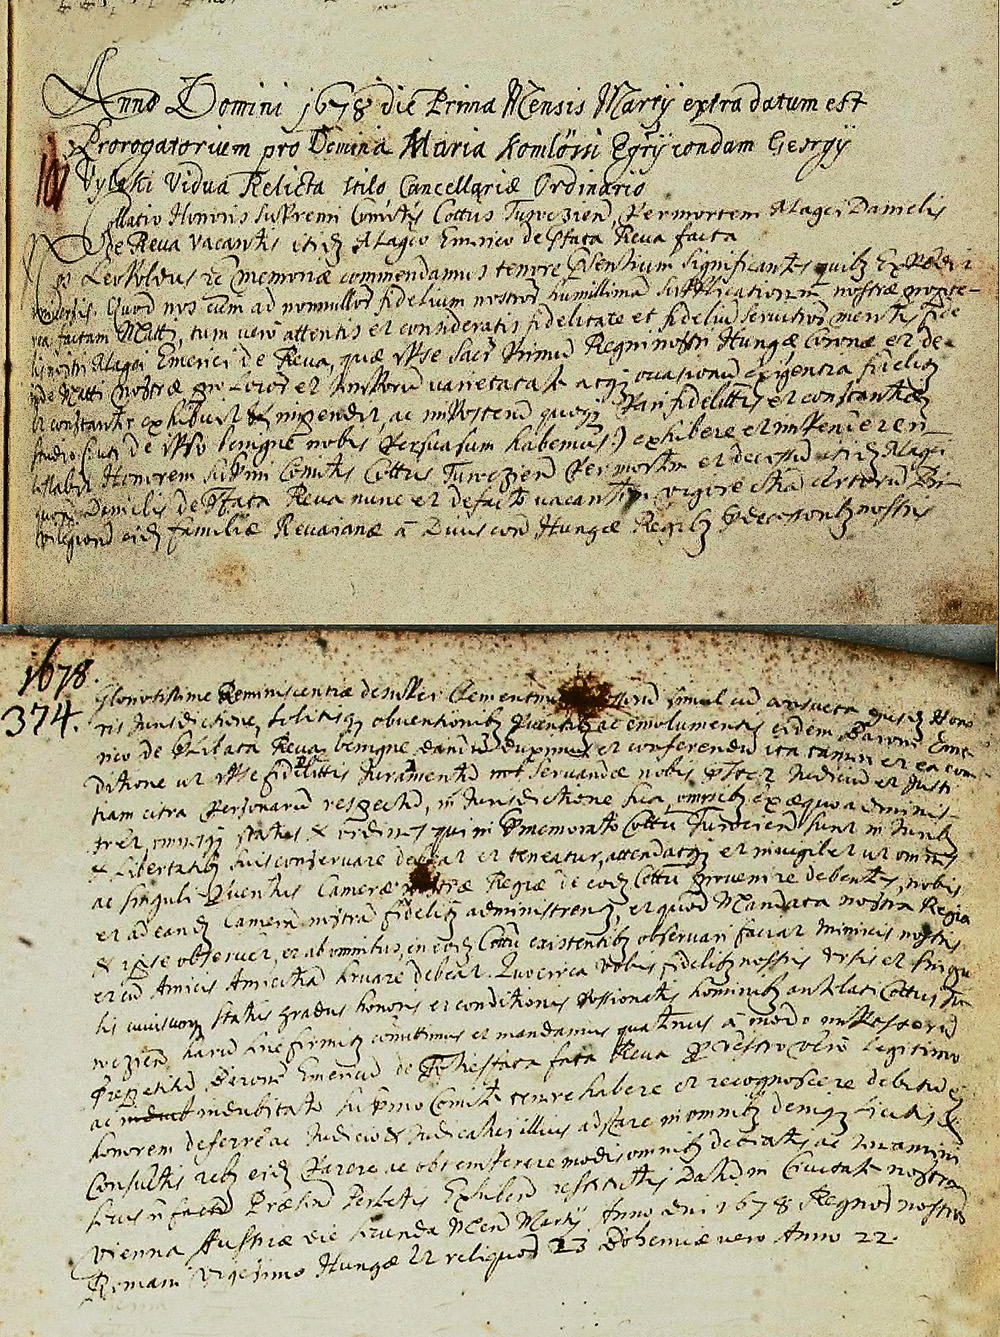 Anno Domini 1678 die Prima Mensis Martÿ extra datum est
Prorogatorium pro Domina Maria Komlössi Egrÿ condam Georgÿ
Vylaki Vidua Relicta stilo Cancellariæ Ordinario
Collatio Honoris Supremi Comitis Cottus Turoczien Per mortem Magci Danielis
de Reva vacantis itid Magco Emrico de Sztata Reva facta
Nos Leopoldus &c memoriæ commendamus tenore Psentium significantes quibz Expedit
universis. Quod nos cum ad nonnullor fidelium nostror humillimã supplicationem nostræ propte-
rea factam Matti, tum vero attentis et consideratis fidelitate et fideliu servitior meritis fide
lis nostri Magci Emerici de Reva, quæ ipse Sacr Primum Regni nostri Hungæ Coronæ et de-
inde Matti nostræ pro locor et temporũ varietate atqz occasionũ exigentia fideliter
et constanter exhibuit et impendit, ac in posterũ quoqz Pari fidelittis et constantiæ
studio (sicuti de ipso benigne nobis Persuasum habemus) exhibere et impendere n
Honorem Suprmi Comitis Cottus Turoczien Per mortem et decessũ itid Magci
quon Danielis de Sztata Reva nunc et de facto vacantem vigore Pri-
vilegiorũ eid familiæ Revaianæ a Divis con Hungæ Regibz Pdecessoribz nostris
1678.
374.
Gloriosissimæ Reminiscentiæ simul cũ consueta ejusd Hono
ris Jurisdictione, solitisqz obventionibz Proventibz ac emolumentis eidem Baroni Eme
rico de Sztata Reva benigne dandũ duximus et conferendũ ita tamen et ea con-
ditione ut ipse fidelittis Juramentũ servande nobis Pstet Judiciũ et Justi
tiam citra Personarũ respectũ, in Jurisdictione sua, omnibz ex æquo adminis-
tret, omnesqz status & ordines qui in Pmemorato Cottu Turocien sunt in Juribz
& Libertatibz suis conservare debeat et teneatur, attendatqz et invigilet ut omnes
ac singuli Proventus Cameræ nostræ Regiæ de eod Cottu provenire debentes, nobis
et ad eand Camerã nostrã fideliter administrent, et quod Mandata nostra Regia
& ipse observet, et ab omnibus, in eod Cottu existentibz observari faciat Inimicis nostris
et cũ Amicis Amicitiã servare debeat. Quocirca Vobis fidelibz nostris Vrsis et singu
lis cuiuscunqz status gradus honoris et conditionis Possionatis hominibz antelati Cottus Tu-
roczien harũ serie firmiter comittimus et mandamus quatenus a modo in Posterũ
Prepetitũ Baronẽ Emericũ de Sztata Reva P vestro vero legitimo
ac indubitato Suprmo Comite tenere habere et recognoscere debitũ ei
honorem deferre ac Judicio & Judicatui illius adstare in omnibz deniqz licitis &
consultis rebz eid Parere ac obtemperare modis omnibz debeatis ac teneamini
secus n facturi Præsentibus Perlectis Exhibenti restitutis Datũ in Civitate nostra
Vienna Austriæ die Secunda Mens Martÿ Anno dni 1678 Regnor nostror
Romani vigesimo Hungæ &c reliquor 23 Bohemiæ vero Anno 22.